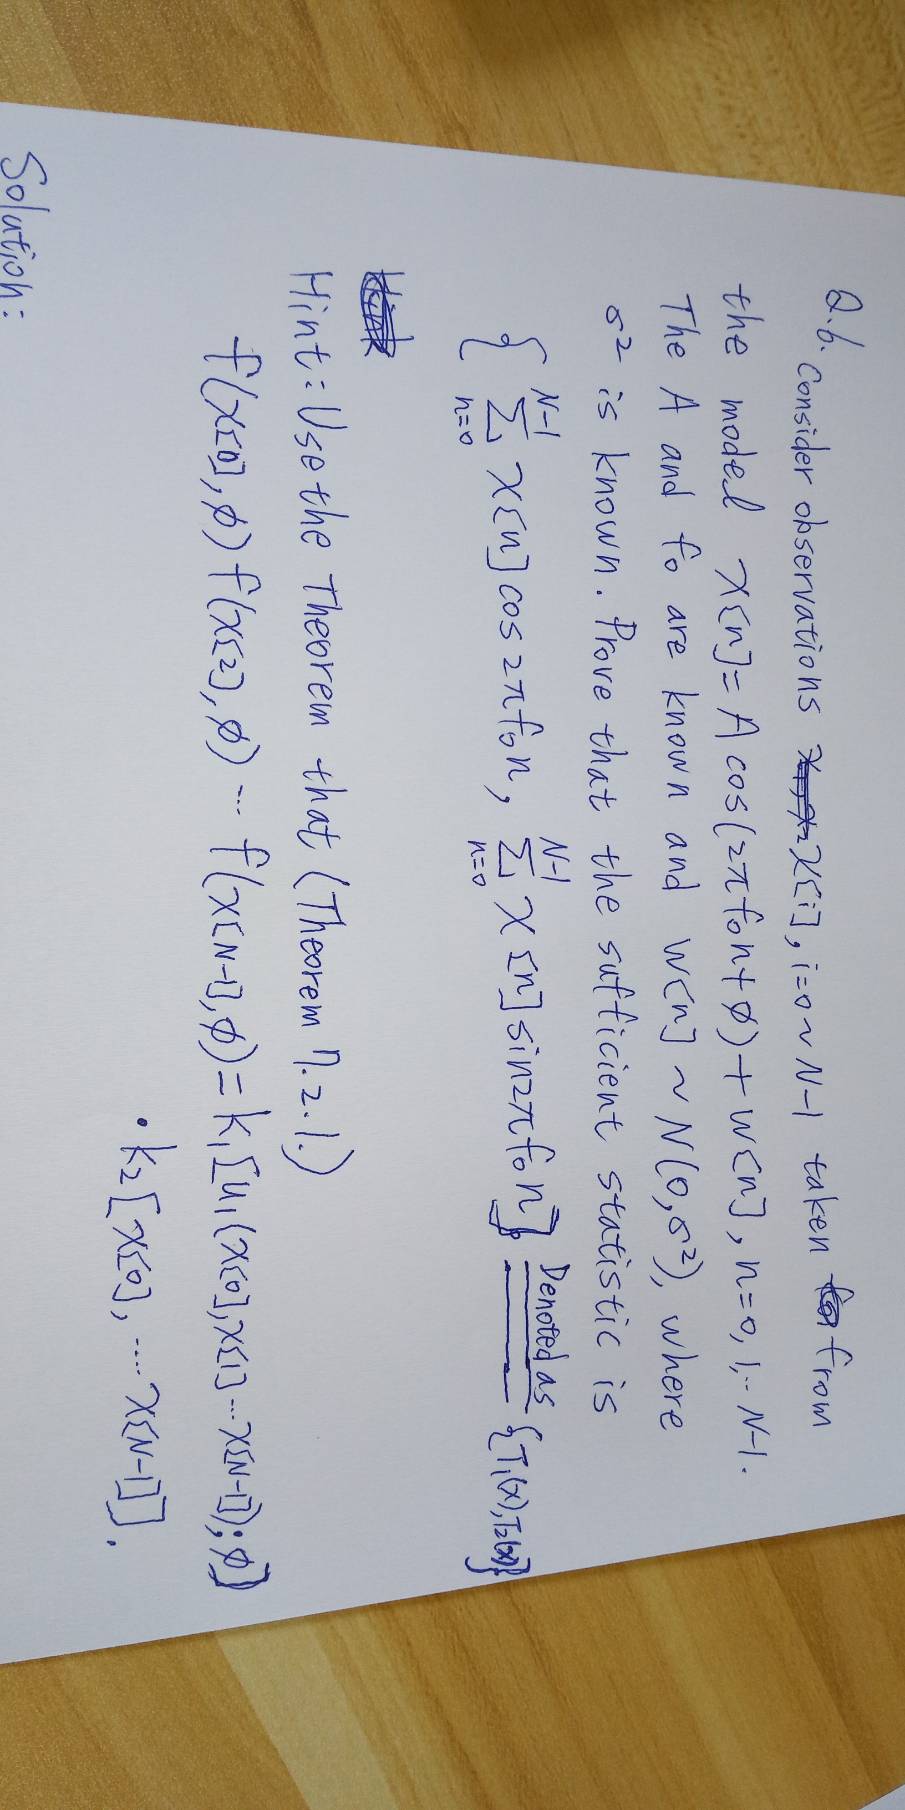 Q.6. Consider observations x[i], i=0~N-1 taken from
the model x[n]=A cos(2πf₀n+φ)+w[n], n=0,1,..N-1.
The A and f₀ are known and w[n] ~ N(0,σ²), where
σ² is known. Prove that the sufficient statistic is
{ Σ_{n=0}^{N-1} x[n] cos 2πf₀n, Σ_{n=0}^{N-1} x[n] sin2πf₀n } Denoted as {T₁(x),T₂(x)}
Hint: Use the Theorem that (Theorem 7.2.1.)
f(x[0],φ) f(x[2],φ) ... f(x[N-1],φ)= k₁[u₁(x[0],x[1]...x[N-1]);φ]
·k₂[x[0], .... x[N-1]].
Solution: